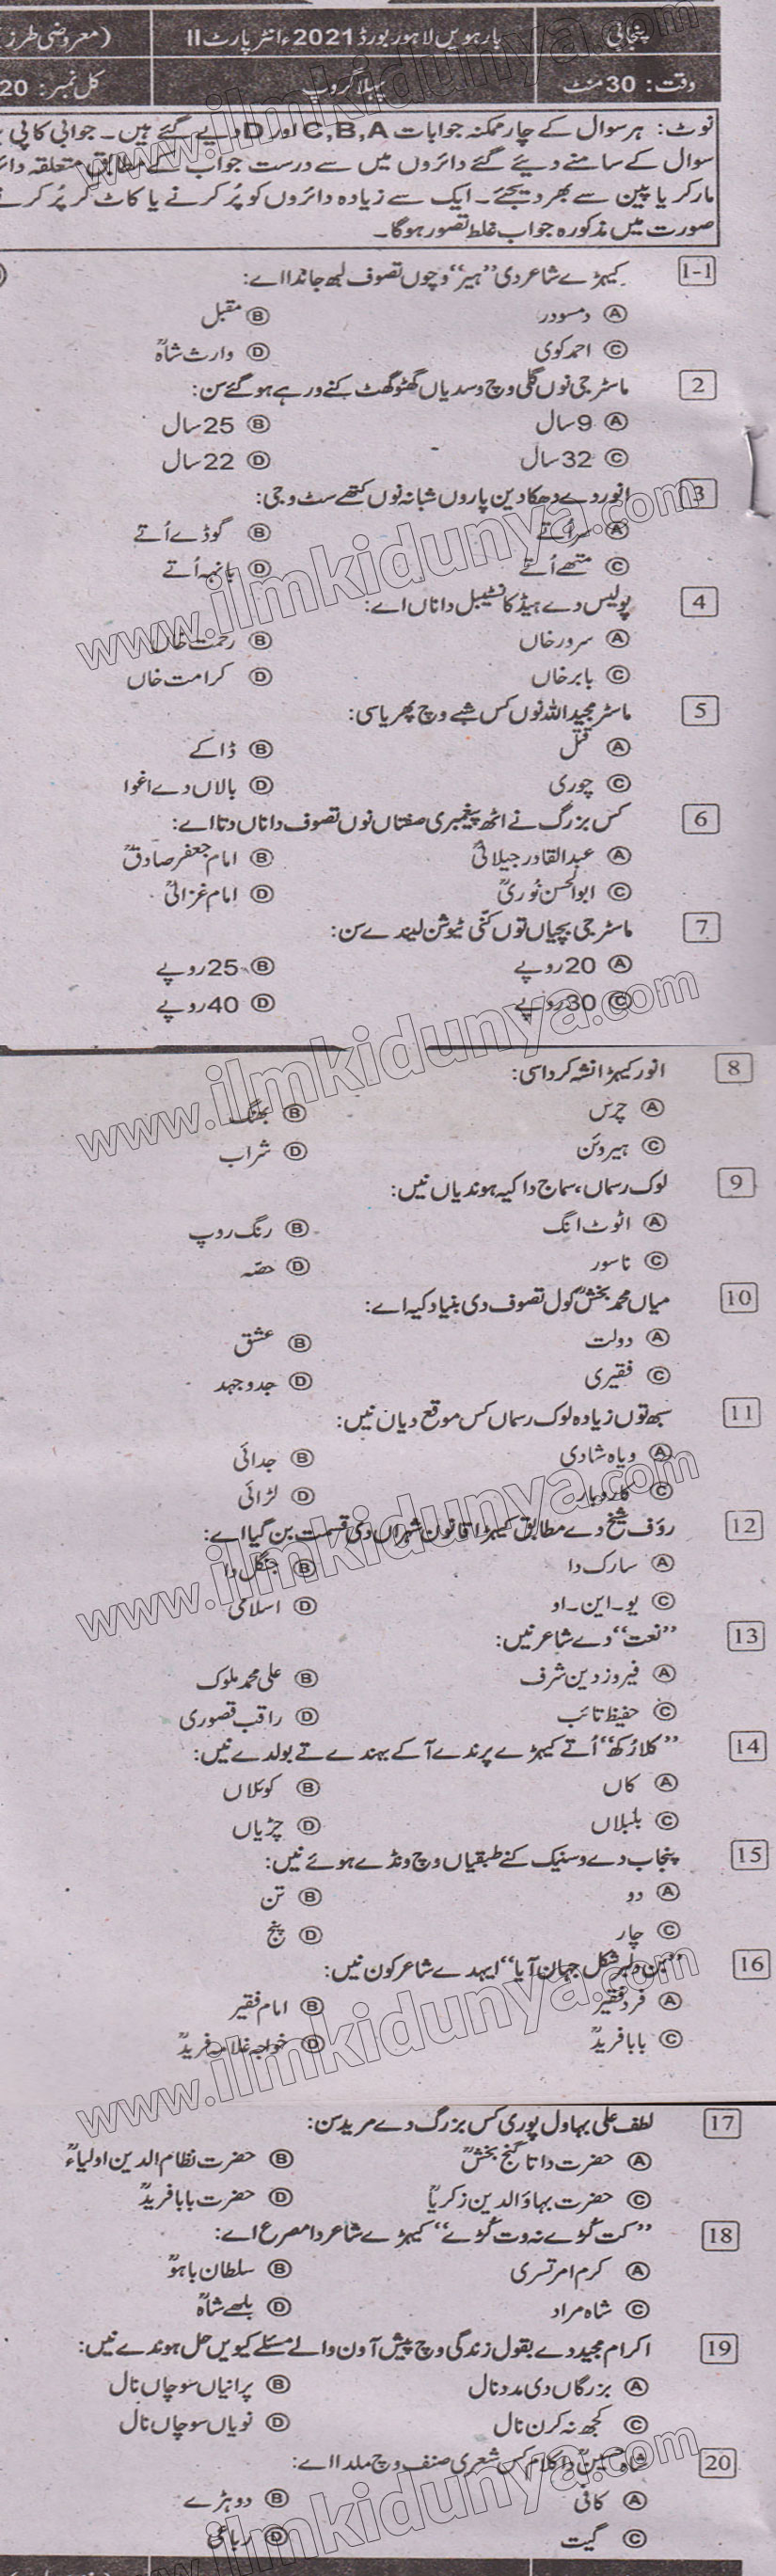 پنجابی بارہویں لاہور بورڈ 2021ء انٹر پارٹ II (معروضی طرز
وقت: 30 منٹ پہلا گروپ کل نمبر: 20
نوٹ: ہر سوال کے چار ممکنہ جوابات C,B,A اور D دیے گئے ہیں۔ جوابی کاپی
سوال کے سامنے دیئے گئے دائروں میں سے درست جواب کے مطابق متعلقہ
مارکر یا پین سے بھر دیجئے۔ ایک سے زیادہ دائروں کو پُر کرنے یا کاٹ کر پُر کرنے
صورت میں مذکورہ جواب غلط تصور ہوگا۔
1-1 کیہڑے شاعر دی ”ہیر“ وچوں تصوف لبھ جاندا اے:
A دمودر B مقبل
C احمد کوی D وارث شاہؒ
2 ماسٹر جی نوں گلی وچ وسدیاں گھٹو گھٹ کنے ورہے ہو گئے سن:
A 9 سال B 25 سال
C 32 سال D 22 سال
3 انور دے دھکا دین پاروں شبانہ نوں کتھے سٹ وجی:
A سر اُتے B گوڈے اُتے
C متھے اُتے D بانہہ اُتے
4 پولیس دے ہیڈ کانسٹیبل دا ناں اے:
A سرور خاں B رحمت خاں
C بابر خاں D کرامت خاں
5 ماسٹر مجید اللہ نوں کس شبے وچ پھریا سی:
A قتل B ڈاکے
C چوری D بالاں دے اغوا
6 کس بزرگ نے اٹھ پیغمبری صفتاں نوں تصوف دا ناں دتا اے:
A عبدالقادر جیلانیؒ B امام جعفر صادقؒ
C ابوالحسن نُوریؒ D امام غزالیؒ
7 ماسٹر جی بچیاں توں کنّی ٹیوشن لیندے سن:
A 20 روپے B 25 روپے
C 30 روپے D 40 روپے
8 انور کیہڑا نشہ کردا سی:
A چرس B بھنگ
C ہیروئن D شراب
9 لوک رسماں، سماج دا کیہ ہوندیاں نیں:
A اٹوٹ انگ B رنگ روپ
C ناسور D حصّہ
10 میاں محمد بخشؒ کول تصوف دی بنیاد کیہ اے:
A دولت B عشق
C فقیری D جدوجہد
11 سبھ توں زیادہ لوک رسماں کس موقع دیاں نیں:
A ویاہ شادی B جدائی
C کاروبار D لڑائی
12 رؤف شیخ دے مطابق کیہڑا قانون شہراں دی قسمت بن گیا اے:
A سارک دا B جنگل دا
C یو۔این۔او D اسلامی
13 ”نعت“ دے شاعر نیں:
A فیروز دین شرف B علی محمد ملوک
C حفیظ تائب D راقب قصوری
14 ”کلا رُکھ“ اُتے کیہڑے پرندے آ کے بہندے تے بولدے نیں:
A کاں B کوئلاں
C بلبلاں D چڑیاں
15 پنجاب دے وسنیک کنے طبقیاں وچ ونڈے ہوئے نیں:
A دو B تن
C چار D پنج
16 ”بن دلبر شکل جہان آیا“ ایہدے شاعر کون نیں:
A فرد فقیر B امام فقیر
C بابا فریدؒ D خواجہ غلام فریدؒ
17 لطف علی بہاول پوری کس بزرگ دے مرید سن:
A حضرت داتا گنج بخشؒ B حضرت نظام الدین اولیاءؒ
C حضرت بہاؤالدین زکریاؒ D حضرت بابا فریدؒ
18 ”کت کُڑے نہ وت کُڑے“ کیہڑے شاعر دا مصرع اے:
A کرم امرتسری B سلطان باہوؒ
C شاہ مراد D بلھے شاہؒ
19 اکرام مجید دے بقول زندگی وچ پیش آون والے مسئلے کیویں حل ہوندے نیں:
A بزرگاں دی مدد نال B پرانیاں سوچاں نال
C کجھ نہ کرن نال D نویاں سوچاں نال
20 شاہ حسینؒ دا کلام کس شعری صنف وچ ملدا اے:
A کافی B دوہڑے
C گیت D رباعی
www.ilmkidunya.com
www.ilmkidunya.com
www.ilmkidunya.com
www.ilmkidunya.com
www.ilmkidunya.com
www.ilmkidunya.com